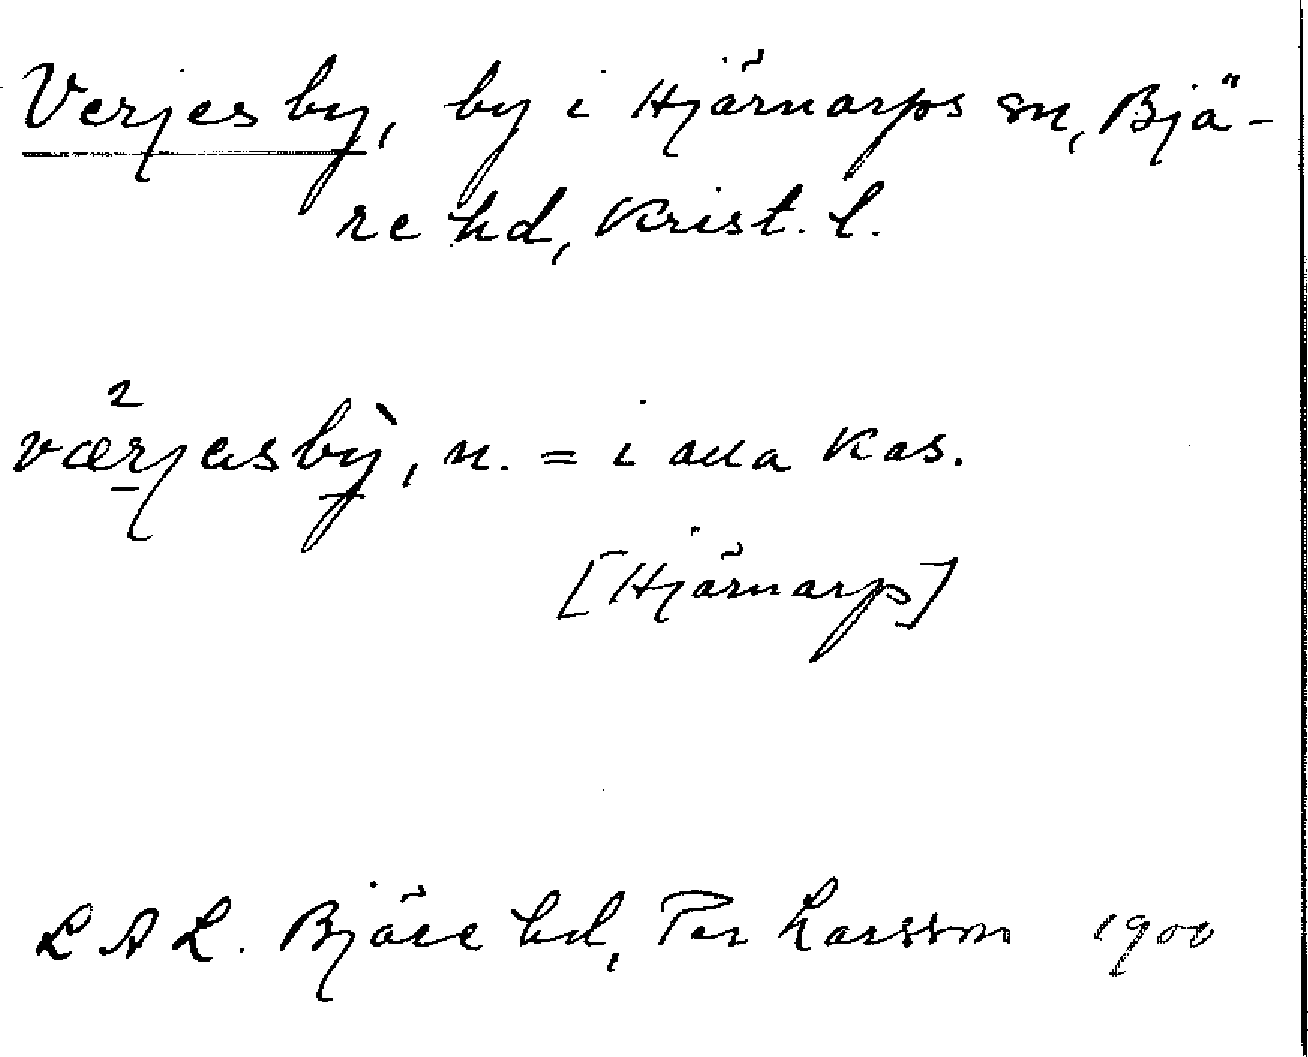 Verjesby, by i Hjärnarps sn, Bjä-
re hd, Krist. l.
værjasbỳ, n. = i alla kas.
[Hjärnarp]
L A L. Bjäre hd, Per Larsson 1900